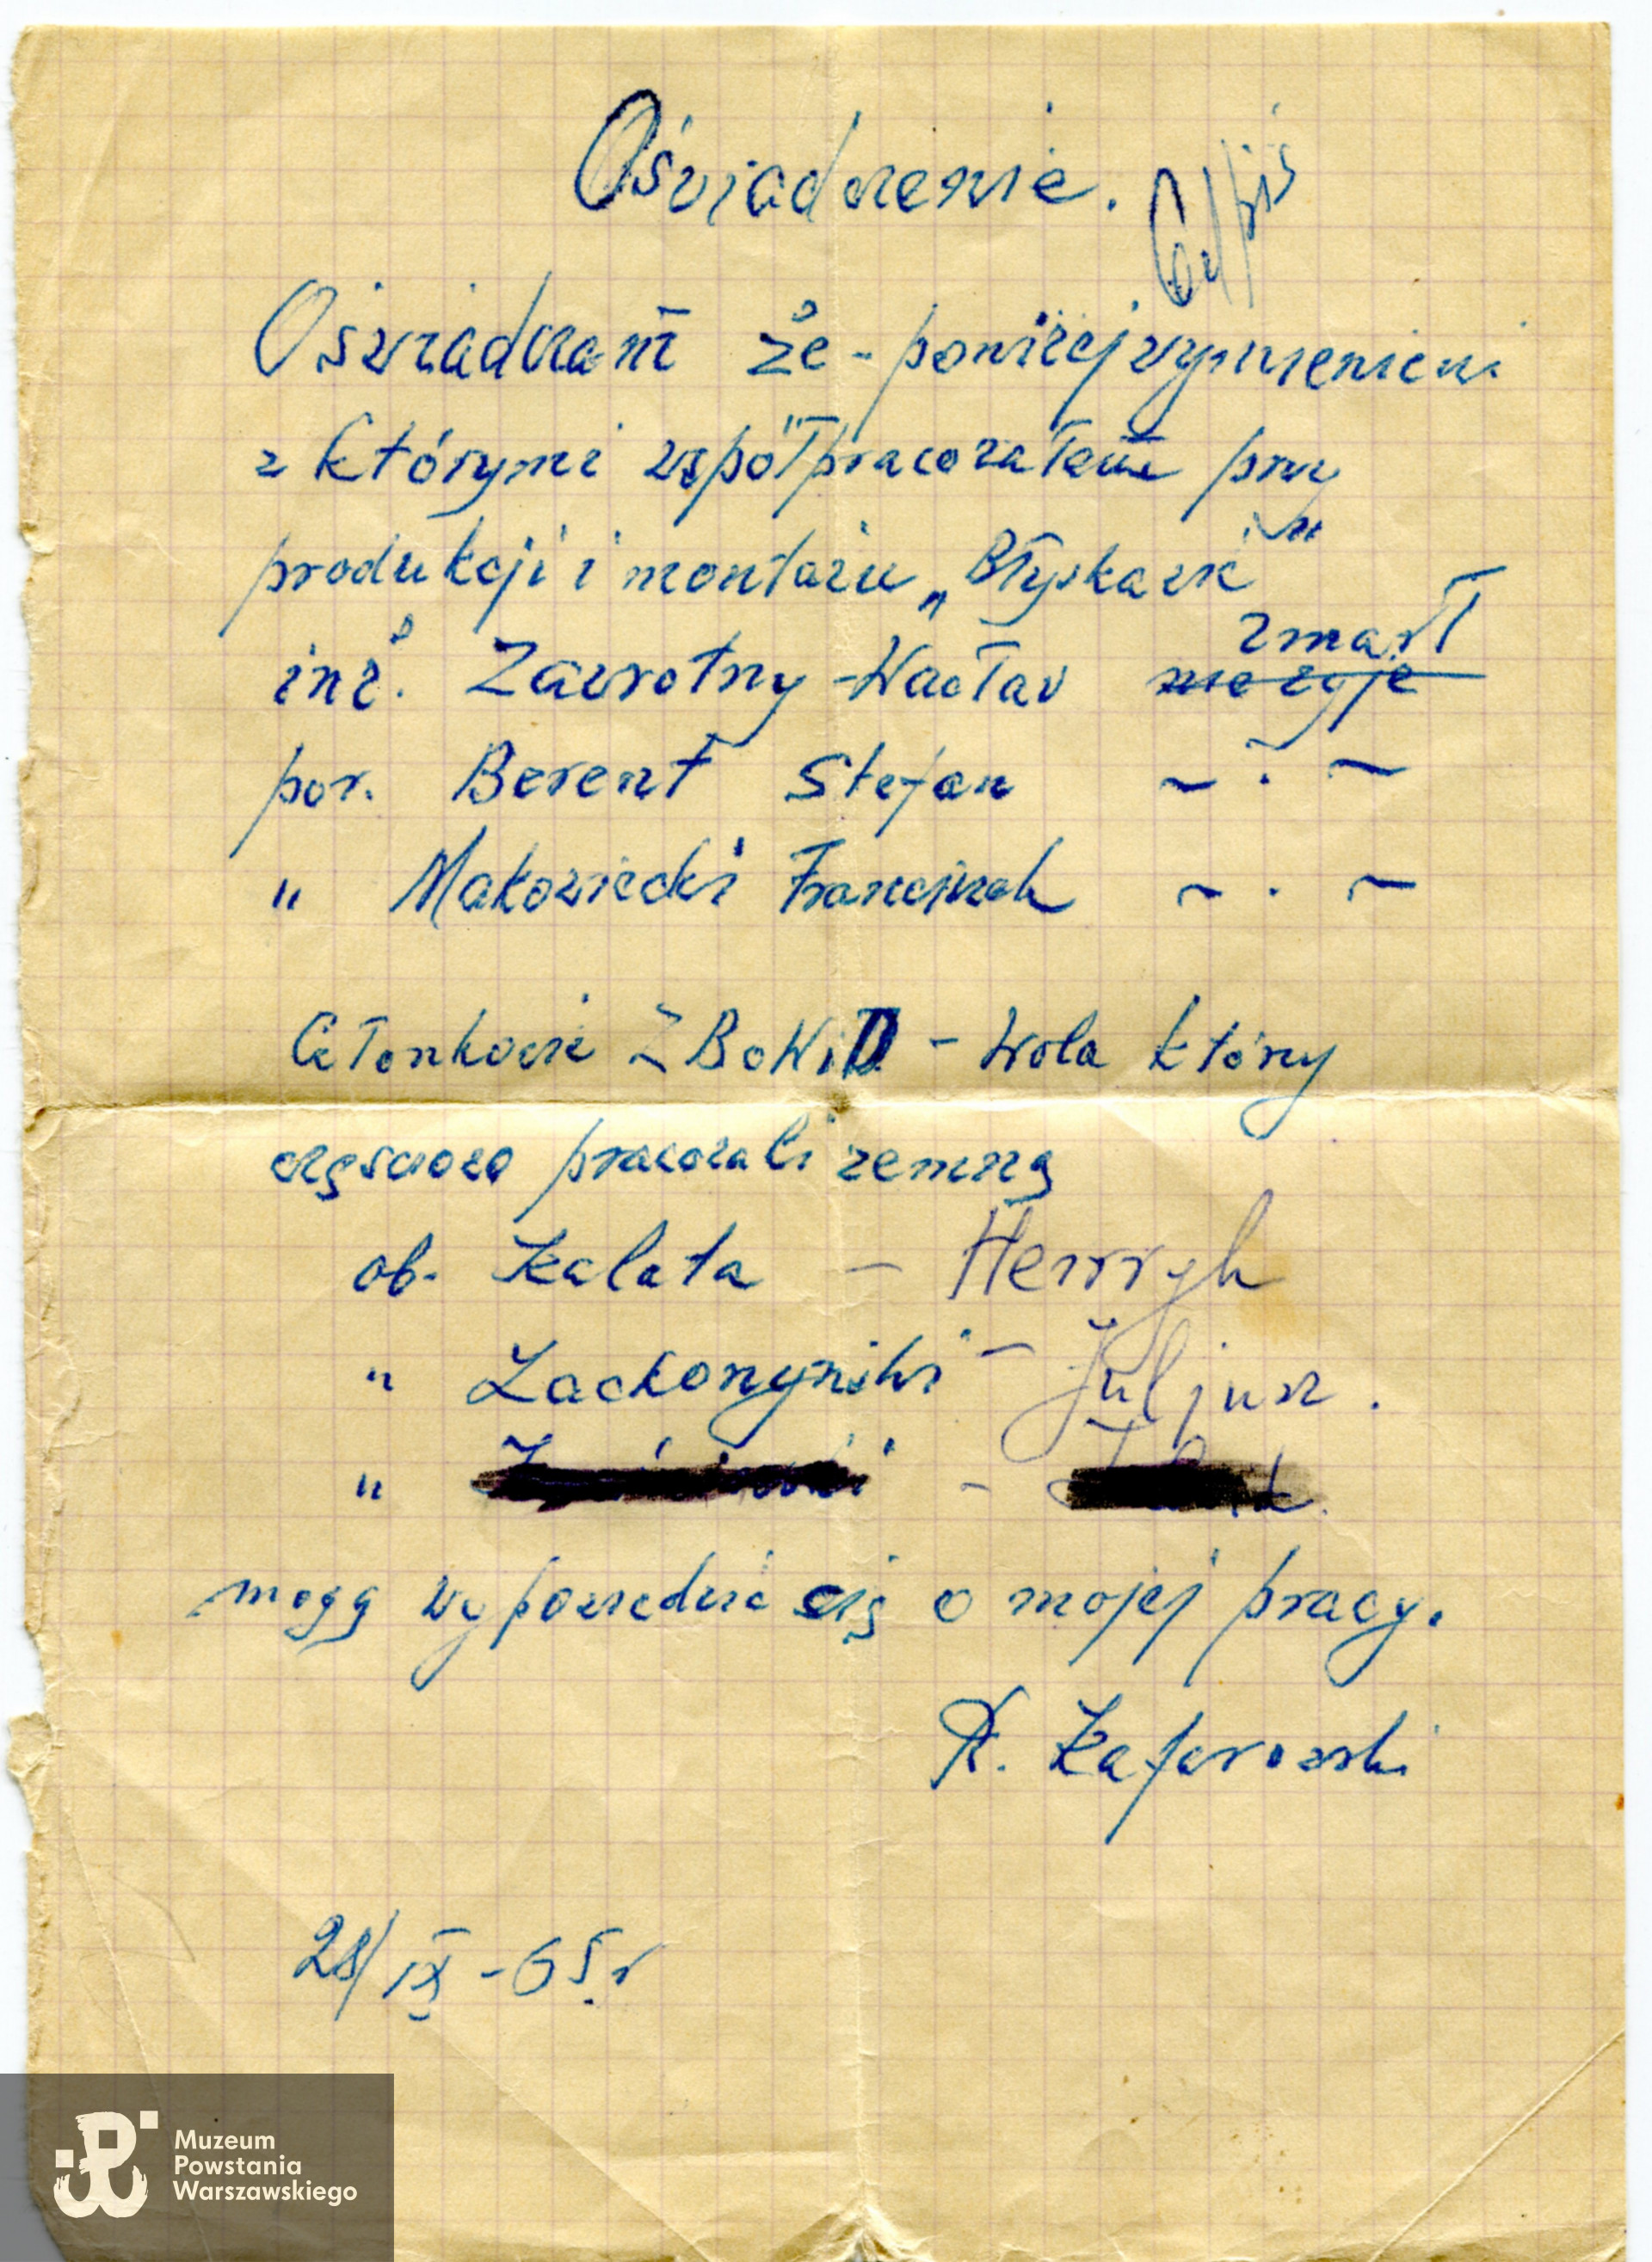 Oświadczenie.
Odpis
Oświadczam że - poniżej wymienieni
z którymi współpracowałem przy
produkcji i montażu „Błyskawic"
zmarł
inż. Zawrotny - Wacław nie żyje
por. Berent Stefan ~ . ~
" Makowiecki Franciszek ~ . ~
Członkowie ZBoWiD - Wola który
częściowo pracowali zemną
ob. Kaleta - Henryk
" Lackorzyński - Juljusz.
" -
mogą wypowiedzieć się o mojej pracy.
K. Kafarowski
28/IX - 65 r
Muzeum
Powstania
Warszawskiego